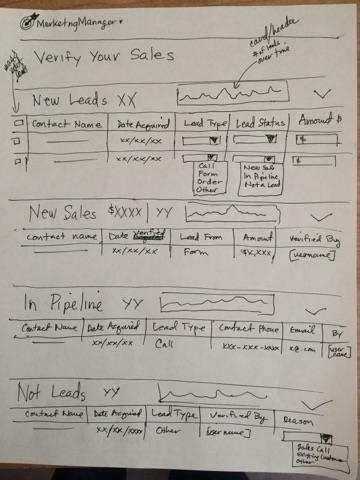 MarketingManager
Verify Your Sales
card/header
# of leads
over time
New Leads XX
Contact Name Date Acquired Lead Type Lead Status Amount $
xx/xx/xx $
xx/xx/xx $
Call
Form
Order
Other
New Sale
In Pipeline
Not a Lead
New Sales $XXXX | YY
Contact name Date Verified Lead From Amount Verified By
xx/xx/xx Form $x,xxx [username]
In Pipeline YY
Contact Name Date Acquired Lead Type Contact Phone Email By
xx/xx/xx Call xxx-xxx-xxxx x@.com [user name]
Not Leads YY
Contact Name Date Acquired Lead Type Verified By Reason
xx/xx/xxxx Other [username]
Sales Call
Existing Customer
Other